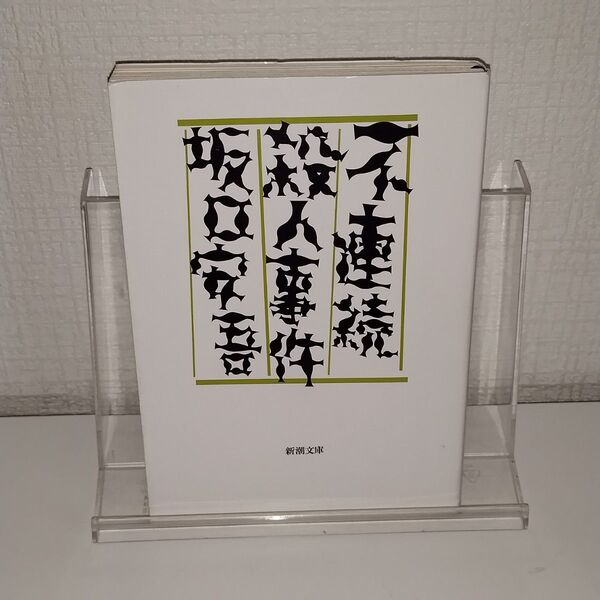 不連続
殺人事件
坂口安吾
新潮文庫